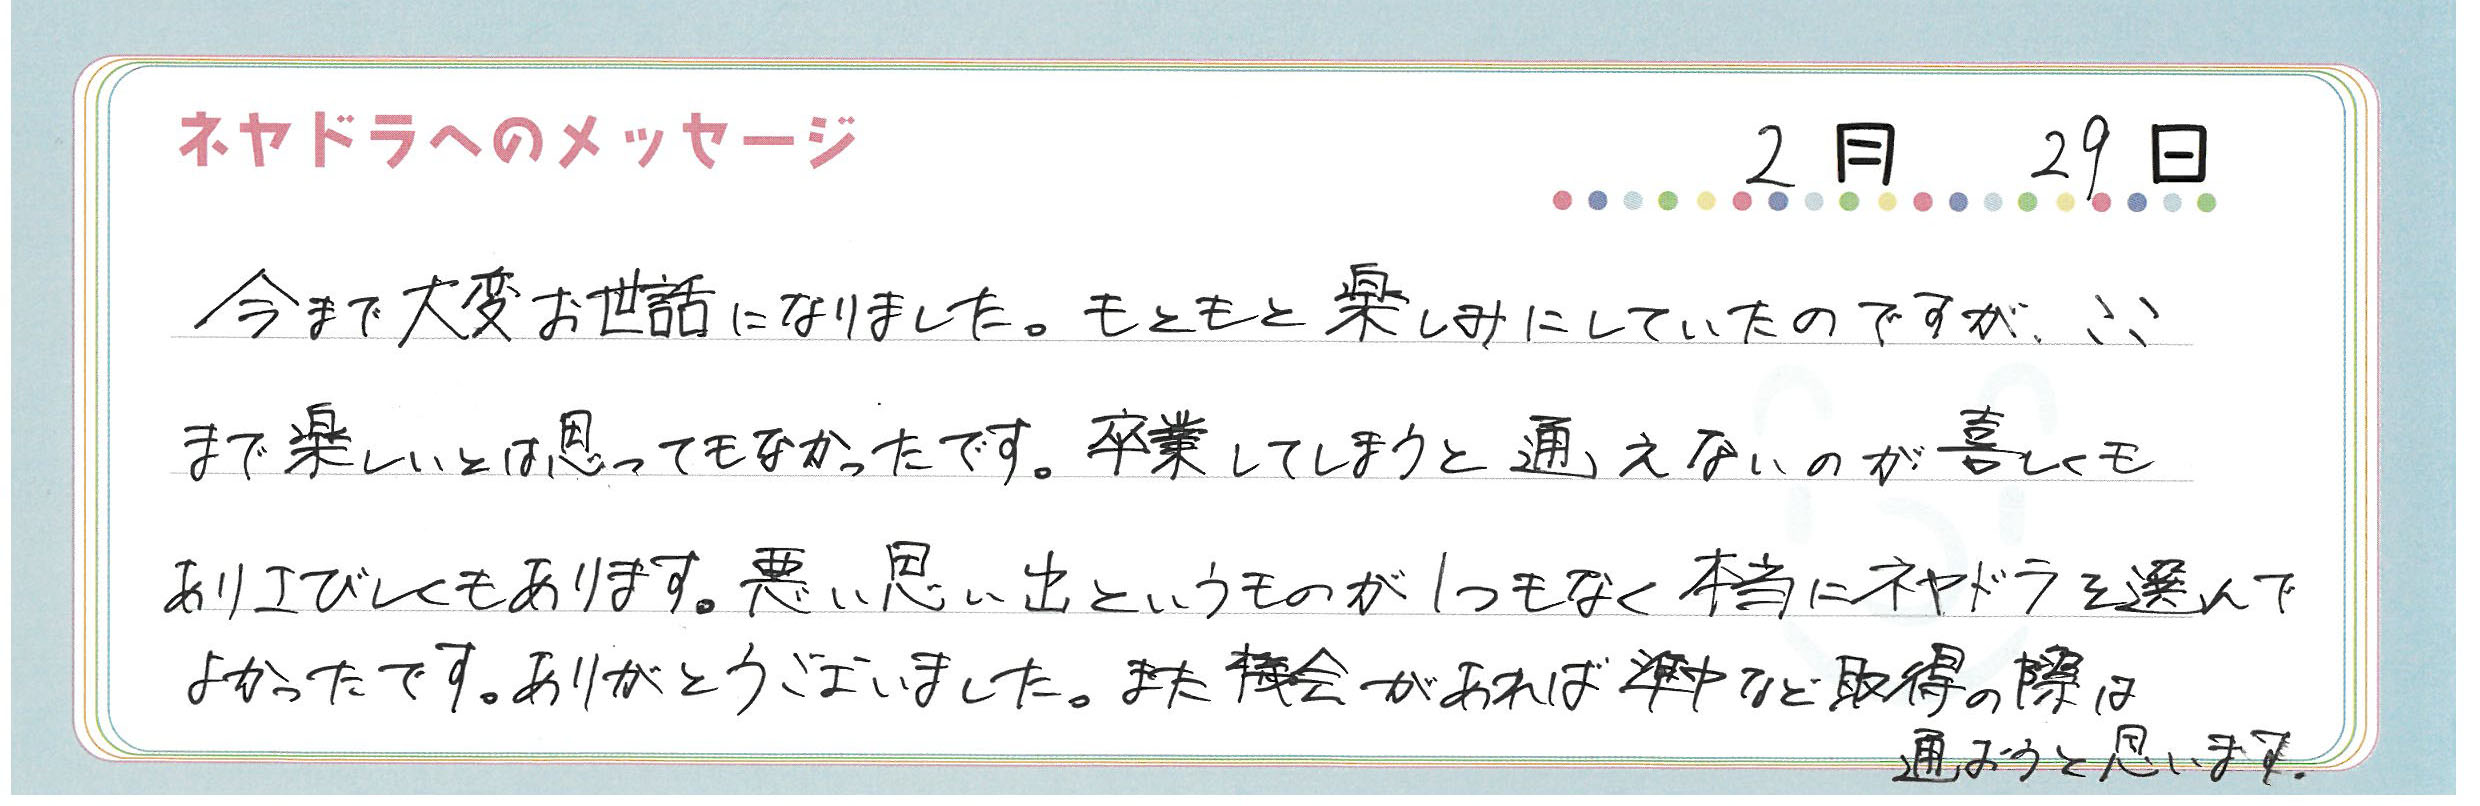 ネヤドラへのメッセージ
2月 29日
今まで大変お世話になりました。もともと楽しみにしていたのですが、ここ
まで楽しいとは思ってもなかったです。卒業してしまうと通えないのが喜しくも
ありさびしくもあります。悪い思い出というものが1つもなく本当にネヤドラを選んで
よかったです。ありがとうございました。また機会があれば準中など取得の際は
通おうと思います。